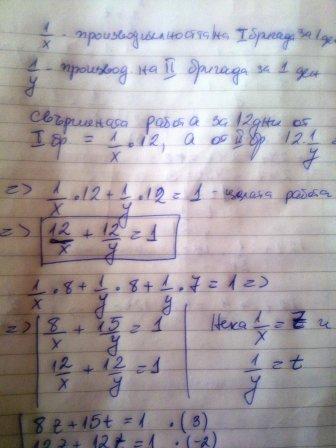 1/x - производителността на I бригада за 1 ден
1/y - произвoд. на II бригада за 1 ден
Свършената работа за 12 дни от
I бр = 1/x . 12, а от II бр 12. 1/y
=> 1/x . 12 + 1/y . 12 = 1 - цялата работа
=> 12/x + 12/y = 1
1/x . 8 + 1/y . 8 + 1/y . 7 = 1 =>
=> | 8/x + 15/y = 1 | Нека 1/x = z и
12/x + 12/y = 1 | 1/y = t
| 8z + 15t = 1 . (3)
12z + 12t = 1 . (-2)